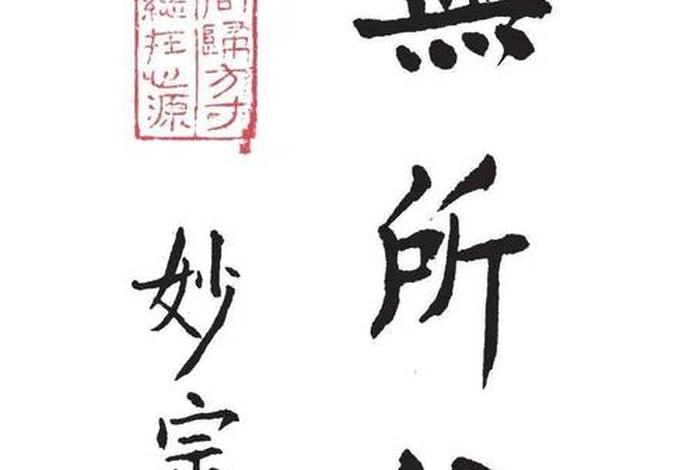 無所
同歸方寸
總在心源
妙宗